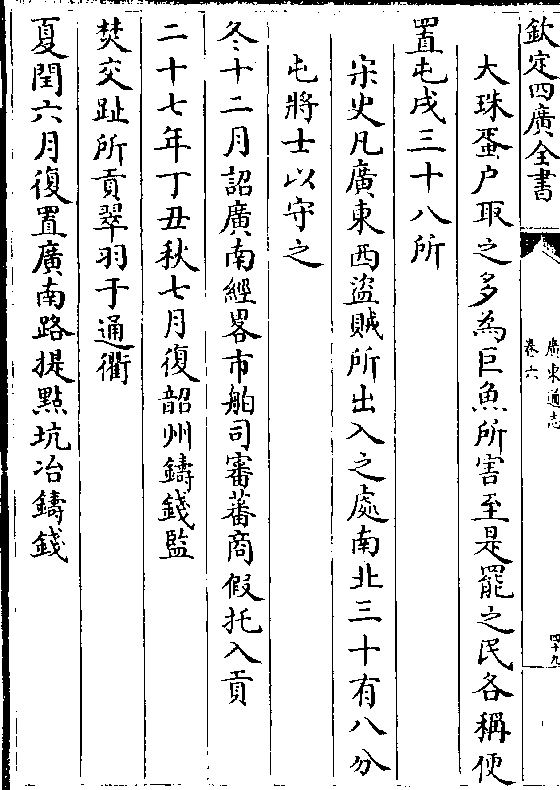 欽定四庫全書
廣東通志
卷六
四十九
大珠蛋户取之多為巨魚所害至是罷之民各稱便
置屯戍三十八所
宋史凡廣東西盗賊所出入之處南北三十有八分
屯將士以守之
冬十二月詔廣南經畧市舶司審蕃商假托入貢
二十七年丁丑秋七月復韶州鑄錢監
焚交趾所貢翠羽于通衢
夏閏六月復置廣南路提點坑冶鑄錢